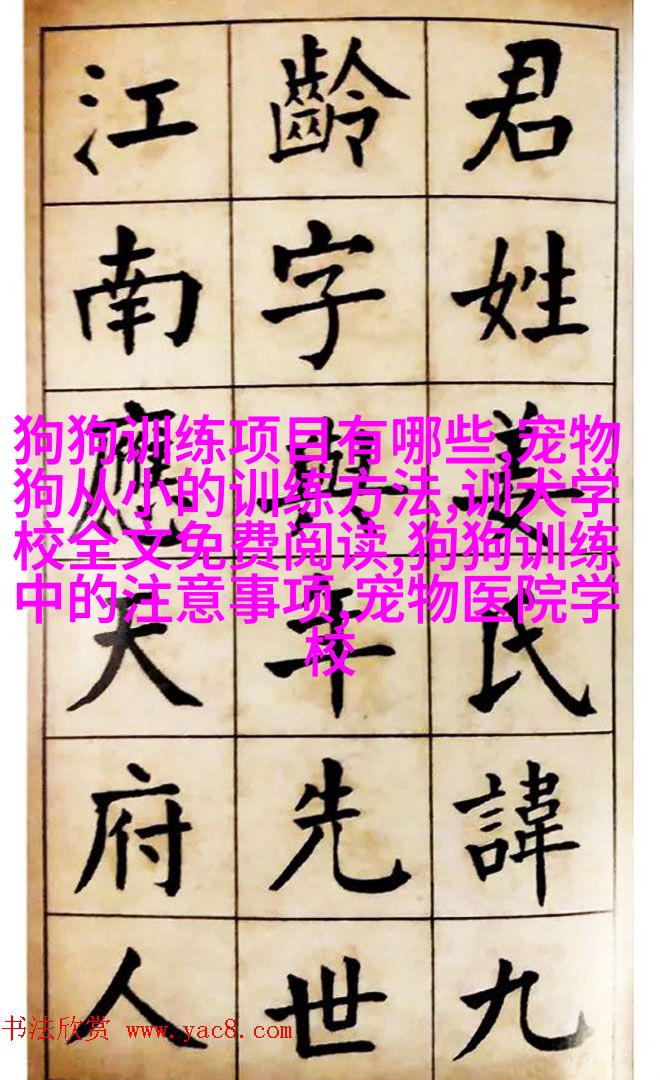 君姓姜氏諱九
齡字與年先世
江南應天府人
狗狗训练项目有哪些,宠物
狗从小的训练方法,训犬学
校全文免费阅读,狗狗训练
中的注意事项,宠物医院学
校
书法欣赏 www.yac8.com